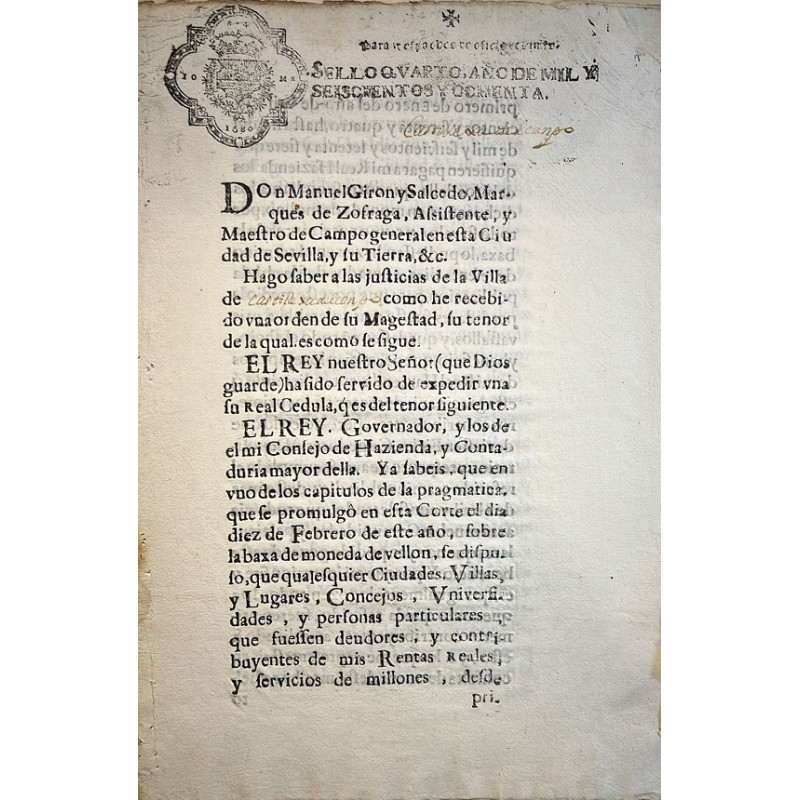 1680
Para despachos de oficio
SELLO QVARTO, AÑO DE MIL Y
SEISCIENTOS Y OCHENTA.
DOn Manuel Giron y Salcedo, Mar-
qués de Zofraga, Aſsiſtente, y
Maeſtro de Campo general en eſta Ciu
dad de Sevilla, y ſu Tierra, &c.
Hago ſaber a las juſticias de la Villa
de como he recebi-
do vna orden de ſu Mageſtad, ſu tenor
de la qual es como ſe ſigue.
EL REY nueſtro Señor (que Dios
guarde) ha ſido ſervido de expedir vna
ſu Real Cedula, q̃ es del tenor ſiguiente.
EL REY. Governador, y los de
el mi Conſejo de Hazienda, y Conta-
duria mayor della. Ya ſabeis, que en
vno de los capitulos de la pragmatica,
que ſe promulgò en eſta Corte el dia
diez de Febrero de eſte año, ſobre
la baxa de moneda de vellon, ſe diſpu-
ſo, que qualeſquier Ciudades, Villas,
y Lugares, Concejos, Vniverſi-
dades, y perſonas particulares,
que fueſſen deudores, y contri-
buyentes de mis Rentas Reales,
y ſervicios de millones, deſde
pri-